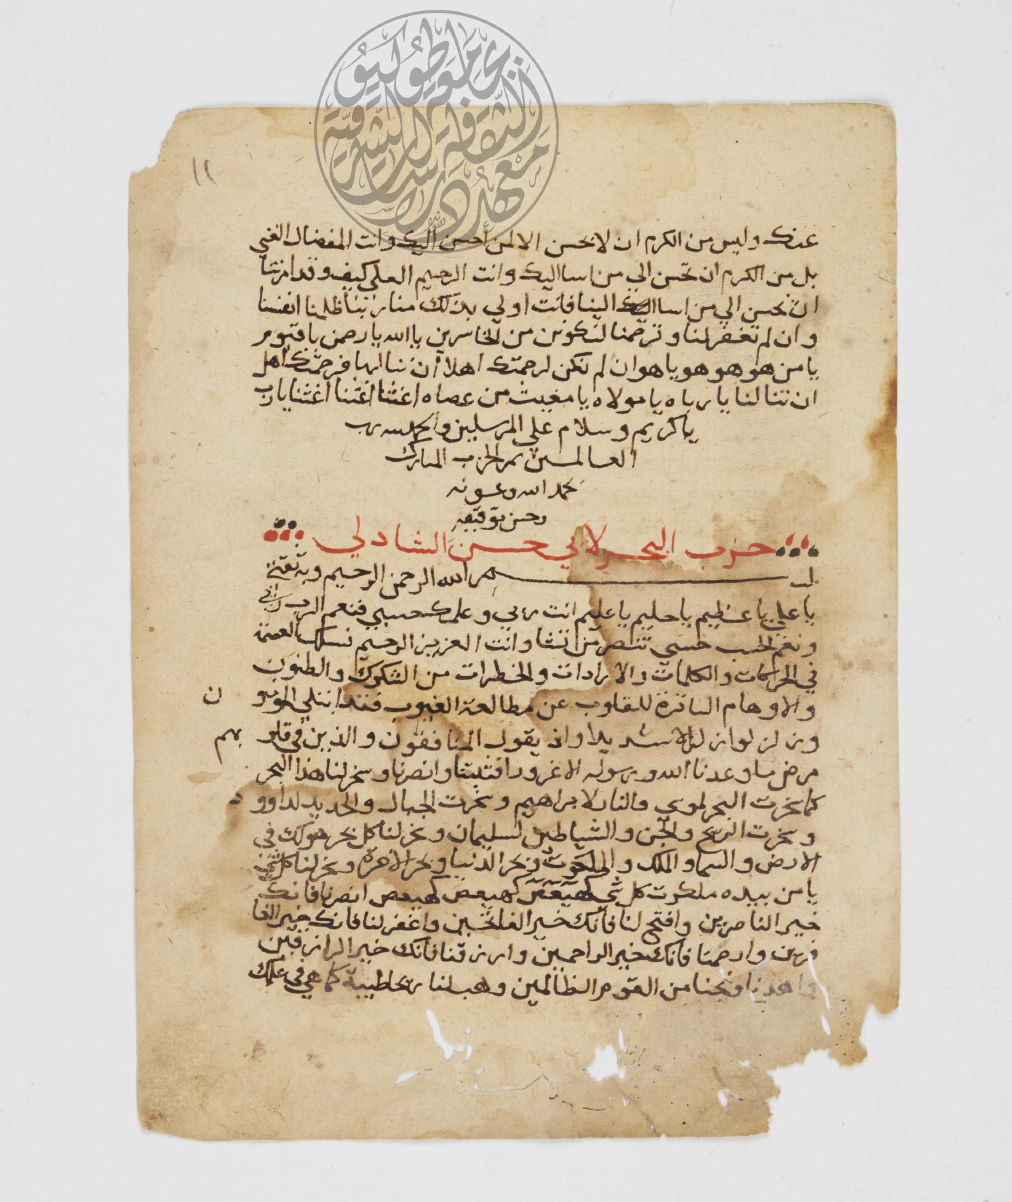 معهد دراسات الثقافة الشرقية بجامعة طوكيو
١١
عنك وليس من الكرم ان لا تحسن الا لمن احسن اليك وانت المفضال الغني
بل من الكرم ان تحسن الي من اسا اليك وانت الرحيم العلي كيف وقد امرتنا
ان نحسن الي من اسا الينا فانت اولي بذلك منا ربنا ظلمنا انفسنا
وان لم تغفر لنا وترحمنا لنكونن من الخاسرين يا الله يا رحمن يا قيوم
يا من هو هو هو يا هو ان لم نكن لرحمتك اهلا ان ننالها فرحمتك اهل
ان تنالنا يا رباه يا مولاه يا مغيث من عصاه اغثنا اغثنا اغثنا يا رب
يا كريم وسلام علي المرسلين والحمد لله رب
العالمين تم الحزب المبارك
بحمد الله وعونه
وحسن توفيقه
حزب البحر لابي حسن الشادلي
بسم الله الرحمن الرحيم وبه ثقتي
يا علي يا عظيم يا حليم يا عليم انت ربي وعلمك حسبي فنعم الرب ربي
ونعم الحسب حسبي تنصر من تشا وانت العزيز الرحيم نسلك العصمة
في الحركات والكلمات والارادات والخطرات من الشكوك والظنون
والاوهام الساترة للقلوب عن مطالعة الغيوب فقد ابتلي المومنو
ن
وزلزلوا زلزالا شديدا واذ يقول المنافقون والذين في قلو
بهم
مرض ما وعدنا الله ورسوله الا غرورا فثبتنا وانصرنا وسخر لنا هذا البحر
كما سخرت البحر لموسي والنار لابراهيم وسخرت الجبال والحديد لداوو
د
وسخرت الريح والجن والشياطين لسليمان وسخر لنا كل بحر هو لك في
الارض والسما والملك والملكوت وبحر الدنيا وبحر الاخرة وسخر لنا كل شي
يا من بيده ملكوت كل شي كهيعص كهيعص كهيعص انصرنا فانك
خير الناصرين وافتح لنا فانك خير الفاتحين واغفر لنا فانك خير الغا
فرين وارحمنا فانك خير الراحمين وارزقنا فانك خير الرازقين
واهدنا ونجنا من القوم الظالمين وهب لنا ريحا طيبة كما هي في علمك